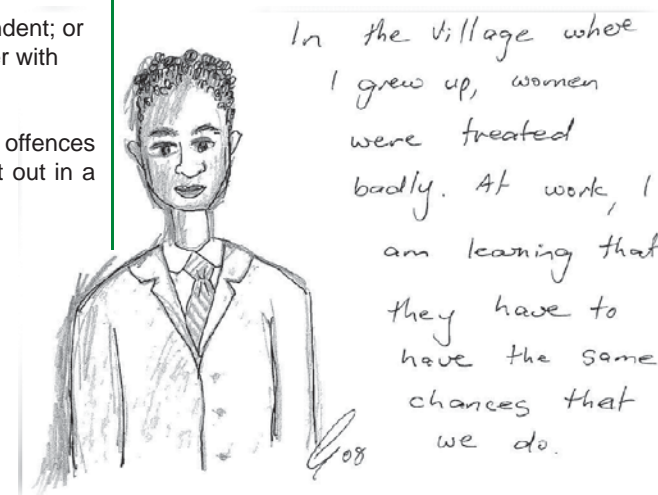 ndent; or
r with
offences
t out in a
In the village where
I grew up, women
were treated
badly. At work, I
am learning that
they have to
have the same
chances that
we do.
08